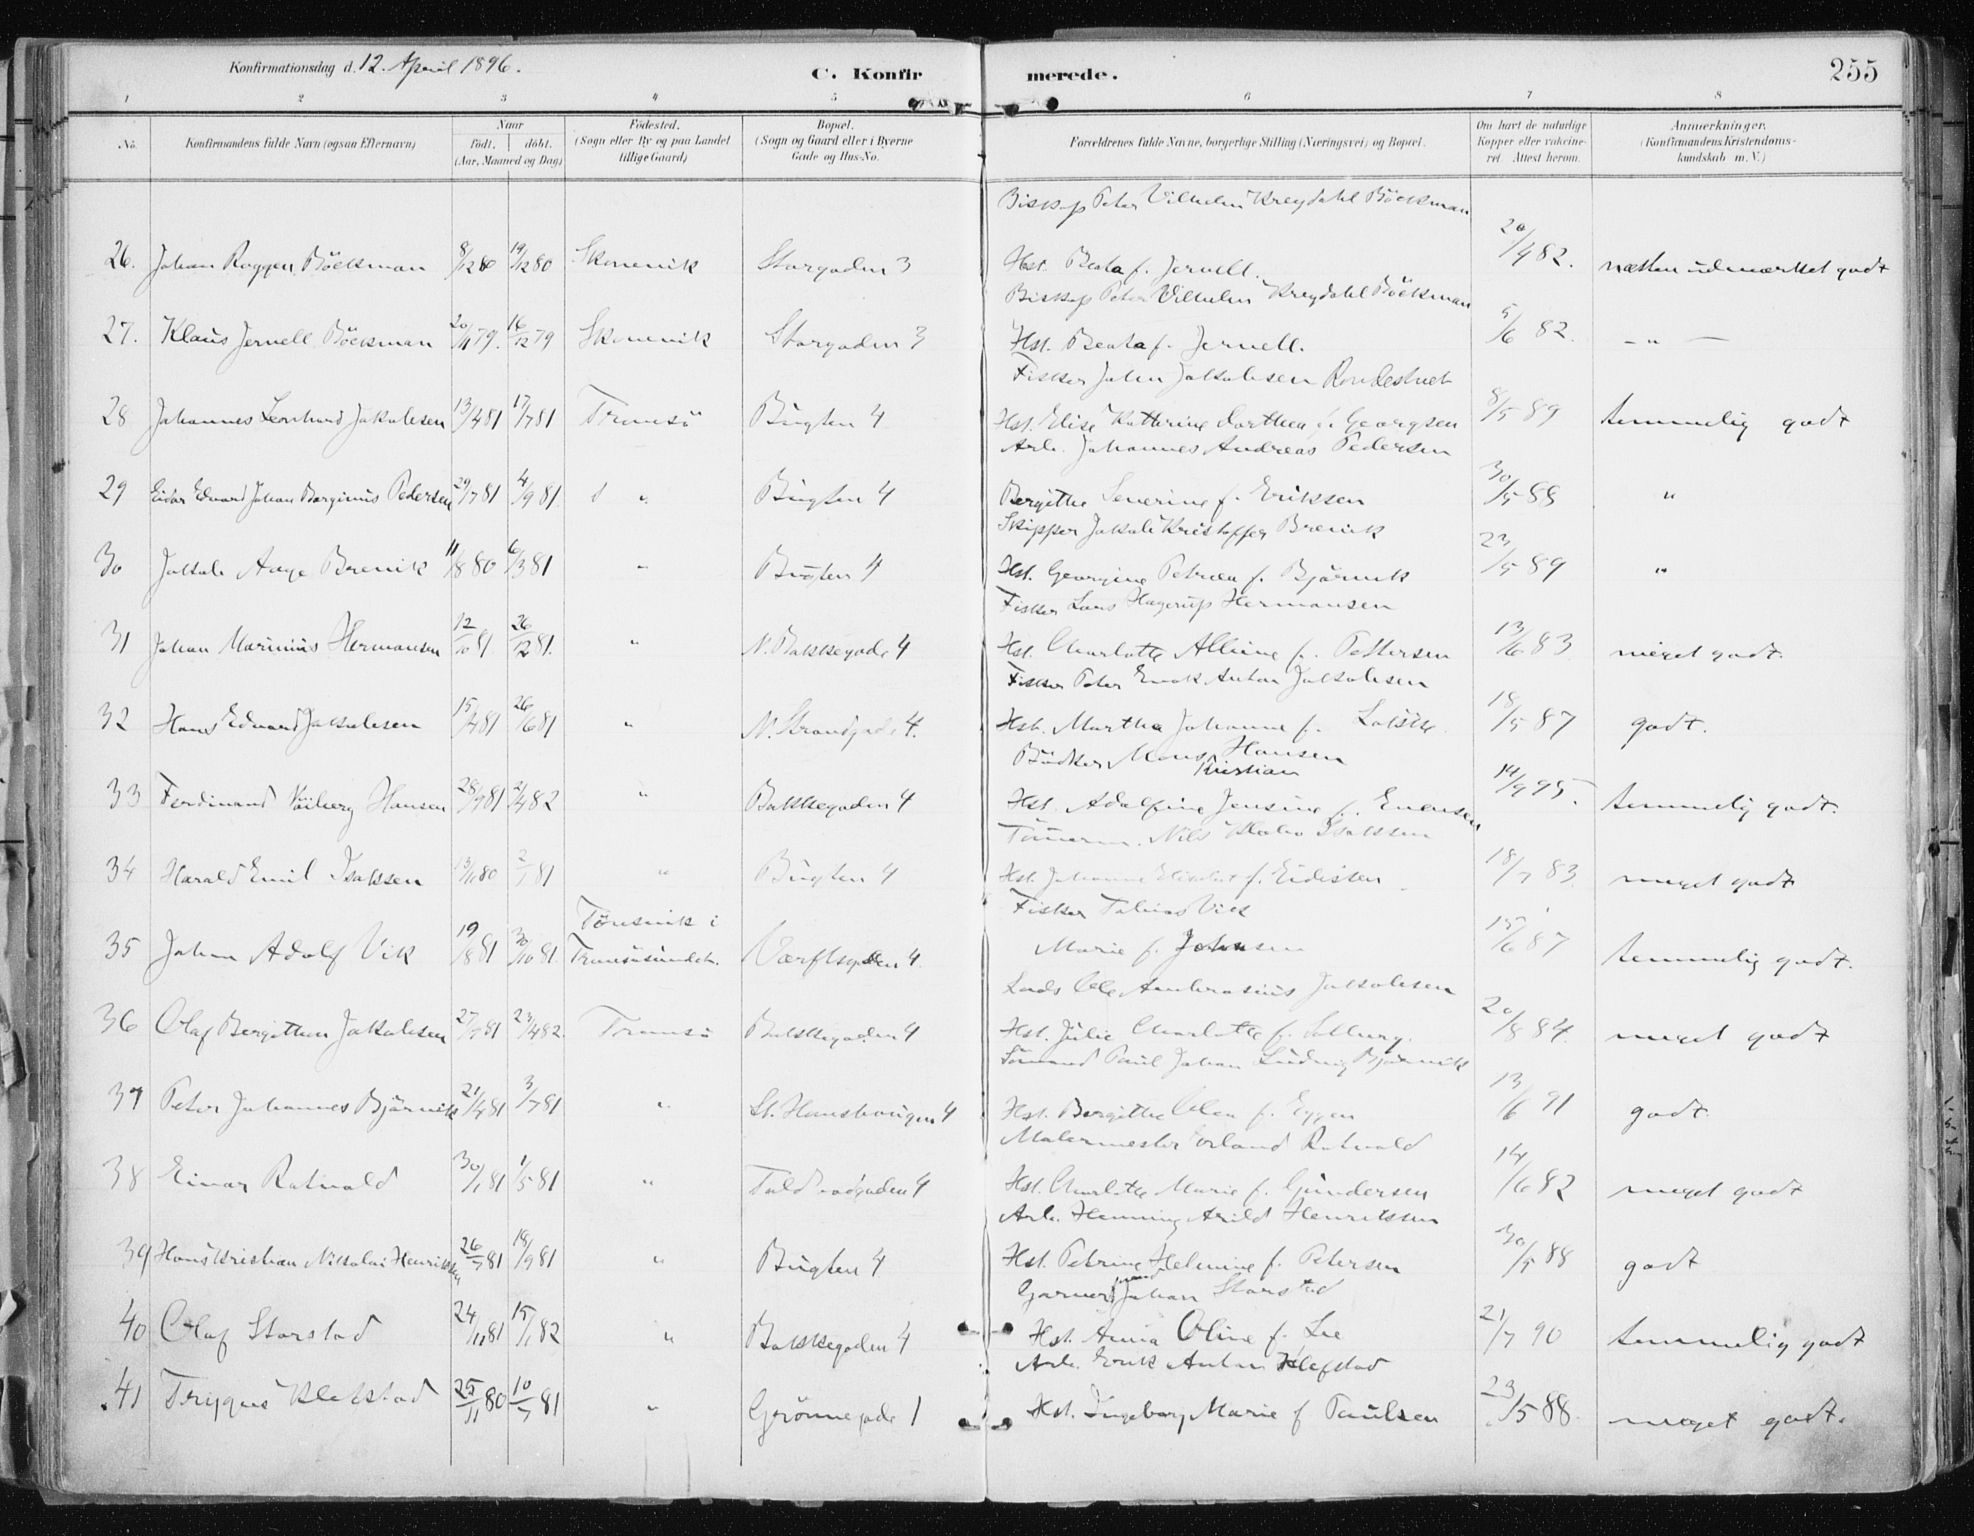 Konfirmationsdag d. 12. April 1896.
C. Konfirmerede.
255
1 2 3 4 5 6 7 8
No.
Konfirmandens fulde Navn (ogsaa Efternavn)
Naar
født. døbt.
(Aar, Maaned og Dag)
Fødested.
(Sogn eller By og paa Landet
tillige Gaard)
Bopæl.
(Sogn og Gaard eller i Byerne
Gade og Hus-No.
Forældrenes fulde Navne, borgerlige Stilling (Næringsvei) og Bopæl.
Om havt de naturlige
Kopper eller vakcine-
ret Attest herom.
Anmærkninger.
(Konfirmandens Kristendoms-
kundskab m. V.)
Biskop Peter Vilhelm Kreydahl Böckman
26. Johan Roggen Böckman 8/12 80 19/12 80 Skonevik Storgaden 3 Hst. Beata f. Jervell. 20/4 82. næsten udmærket godt
Biskop Peter Vilhelm Kreydahl Böckman
27. Klaus Jervell Böckman 20/11 79. 16/12 79 Skonevik Storgaden 3 Hst. Beata f. Jervell. 5/6 82. - " -
Fisker Johan Jakobsen
28 Johannes Leonhard Jakobsen 13/4 81 17/7 81 Tromsö Bugten 4 Hst. Elise Kathrine Dorthea f. Georgsen 8/5 89 temmelig godt
Arb. Johannes Andreas Pedersen
29 Eidar Edvard Johan Borginius Pedersen 29/7 81 4/9 81 " Bugten 4 Bergithe Severine f. Eriksen 30/5 88 "
Skipper Jakob Kristoffer Brevik
30 Jakob Aage Brevik 11/8 80 6/3 81 " Bugten 4 Hst. Georgine Petrea f. Bjørvik 23/5 89 "
Fisker Lars Hagerup Hermansen
31 Johan Marinius Hermansen 12/10 81 26/12 81. " N. Bakkegade 4 Hst. Charlotte Alline f. Pettersen 13/6 83 meget godt.
Fisker Peter Enok Anton Jakobsen
32 Hans Edvard Jakobsen 15/4 81 26/6 81 " N. Strandgade 4. Hst. Martha Johanne f. 18/5 87 godt.
Bödker Mons Kristian Hansen
33 Ferdinand Hansen 28/9 81 2/4 82 " Bakkegaden 4 Hst. Adolfine Jensine f. Evensen 14/9 95. temmelig godt.
Tömerm. Nils Isaksen
34 Harald Emil Isaksen 13/11 80 2/1 81 " Bugten 4 Hst. Johanne Elisabet f. Eidisten 18/7 83. meget godt
Fisker Tobias Vik
35 Johan Adolf Vik 19/8 81 30/10 81 Tönsvik i Tromsösundet. Værftsgaden 4. Marie f. Johnsen 15/6 87 temmelig godt.
Lods Ole Ambrosius Jakobsen
36 Olaf Bergithon Jakobsen 27/7 81 23/4 82. Tromsö Bakkegaden 4 Hst. Julie Charlotte f. Solberg. 20/8 84. meget godt
Sömand Paul Johan Ludvig Bjørnvik
37 Peter Johannes Bjørnvik 21/4 81 3/7 81 " St. Hanshaugen 4 Hst. Bergithe Olea f. Eggen 13/6 91 godt.
Malermester Erland Rotvold
38 Einar Rotvold 30/1 81 1/5 81 " Toldbodgaden 4 Hst. Charlotte Marie f. Gundersen 14/6 82 meget godt
Arb. Henning Arild Henriksen
39 Hans Kristian Nikolai Henriksen 26/7 81 18/9 81 " Bugten 4 Hst. Petrine Helmine f. Petersen 30/5 88 godt
Garversvend Johan Storstad
40 Olaf Storstad 24/11 81 15/1 82 " Bakkegaden 4 Hst. Anna Oline f. Lee 21/7 90 temmelig godt
Arb. Erik Anton Klefstad
41 Trygve Klefstad 25/11 80 10/7 81 " Grönnegade 1 Hst. Ingeborg Marie f Paulsen 23/5 88. meget godt.